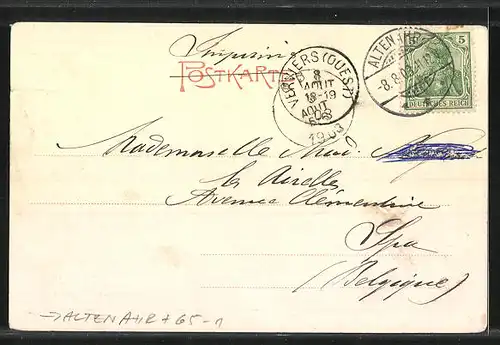 Imprimé
POSTKARTE
VERVIERS (OUEST)
8
AOUT
18-19
AOUT
1903
ALTENAHR
-8.8.03. 11-12
5
DEUTSCHES REICH
Mademoiselle
les Airelles
Avenue Clémentine
Spa
(Belgique)
→ ALTENAHR + G5-1